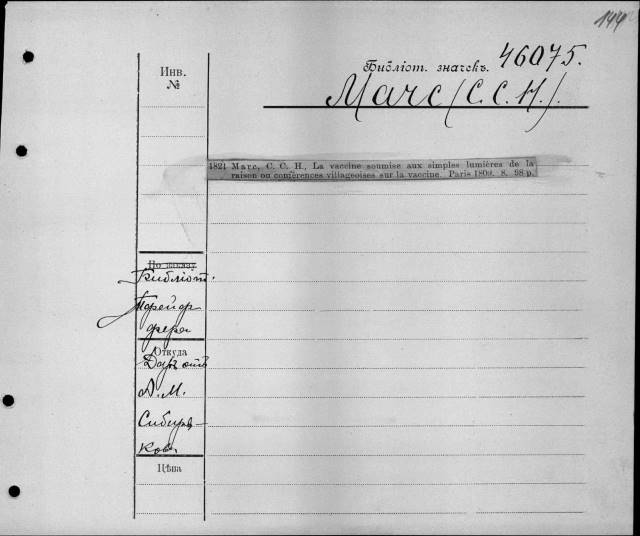 144
Инв.
№
Библіот. значекъ. 46075.
Marc (C. C. H.).
1821 Marc, C. C. H. La vaccine soumise aux simples lumières de la
raison ou conférences villageoises sur la vaccine. Paris 1809. 8. 98 p.
По заказу
Библіот.
Откуда
Даръ отъ
А. М.
Сибиря-
кова
Цѣна